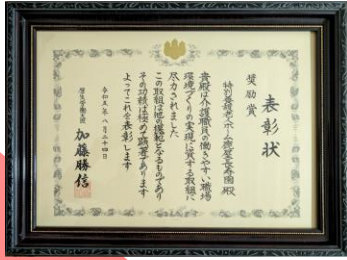 表彰状
奨励賞
特別養護老人ホーム鹿屋長寿園殿
貴殿は介護職員の働きやすい職場
環境づくりの実現に資する取組に
尽力されました
この取組は他の模範となるものであり
その功績は極めて顕著であります
よってこれを表彰します
令和五年八月二十四日
厚生労働大臣
加藤勝信